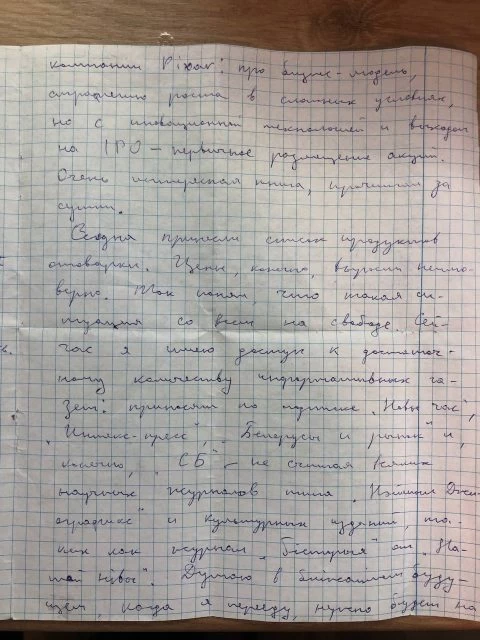 компании Pixar: про бизнес-модель,
стратегию роста в сложных условиях,
но с инновационной технологией и выходом
на IPO – первичное размещение акций.
Очень интересная книга, прочитал за
сутки.
Сегодня принесли список продуктов
отоварки. Цены, конечно, выросли неимо-
верно. Так понял, что такая си-
туация со всем на свободе. Сей-
час я имею доступ к достаточ-
ному количеству информативных га-
зет: приносят по подписке „Новы час",
„Интекс-пресс", „Белорусы и рынок" и,
конечно, „СБ" – не считая всяких
научных журналов типа „Нэйшнл Джи-
ографикс" и культурных изданий, та-
ких как журнал „Гісторыя" от „На-
шай Нівы". Думаю в ближайшем буду-
щем, когда я перееду, нужно будет на